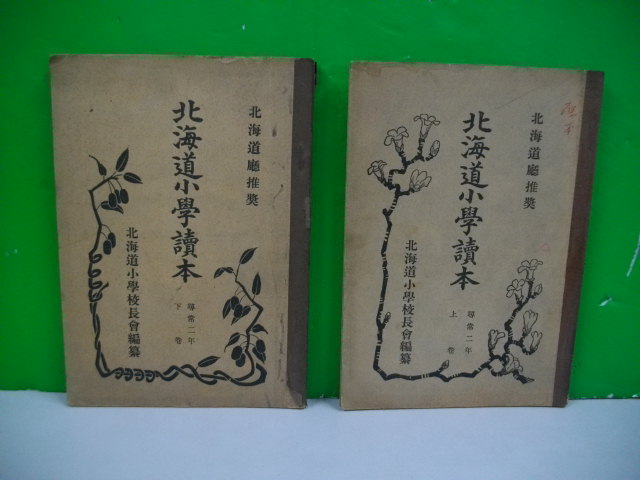 北海道廳推奬
北海道小學讀本
尋常二年
下卷
北海道小學校長會編纂
北海道廳推奬
北海道小學讀本
尋常二年
上卷
北海道小學校長會編纂